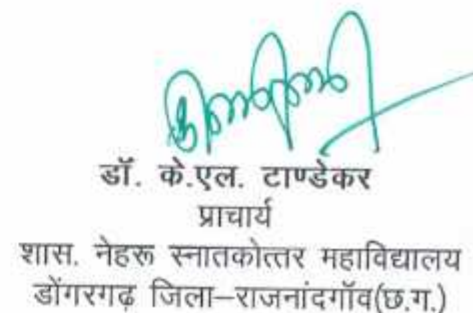 डॉ. के.एल. टाण्डेकर
प्राचार्य
शास. नेहरू स्नातकोत्तर महाविद्यालय
डोंगरगढ़ जिला–राजनांदगॉव(छ.ग.)